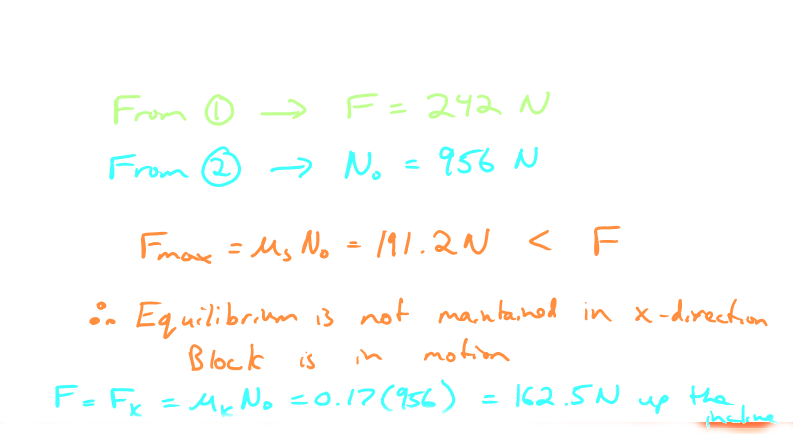 From ① → F = 242 N
From ② → N₀ = 956 N
Fmax = μs N₀ = 191.2 N < F
∴ Equilibrium is not maintained in x-direction
Block is in motion
F = Fk = μk N₀ = 0.17(956) = 162.5 N up the
incline